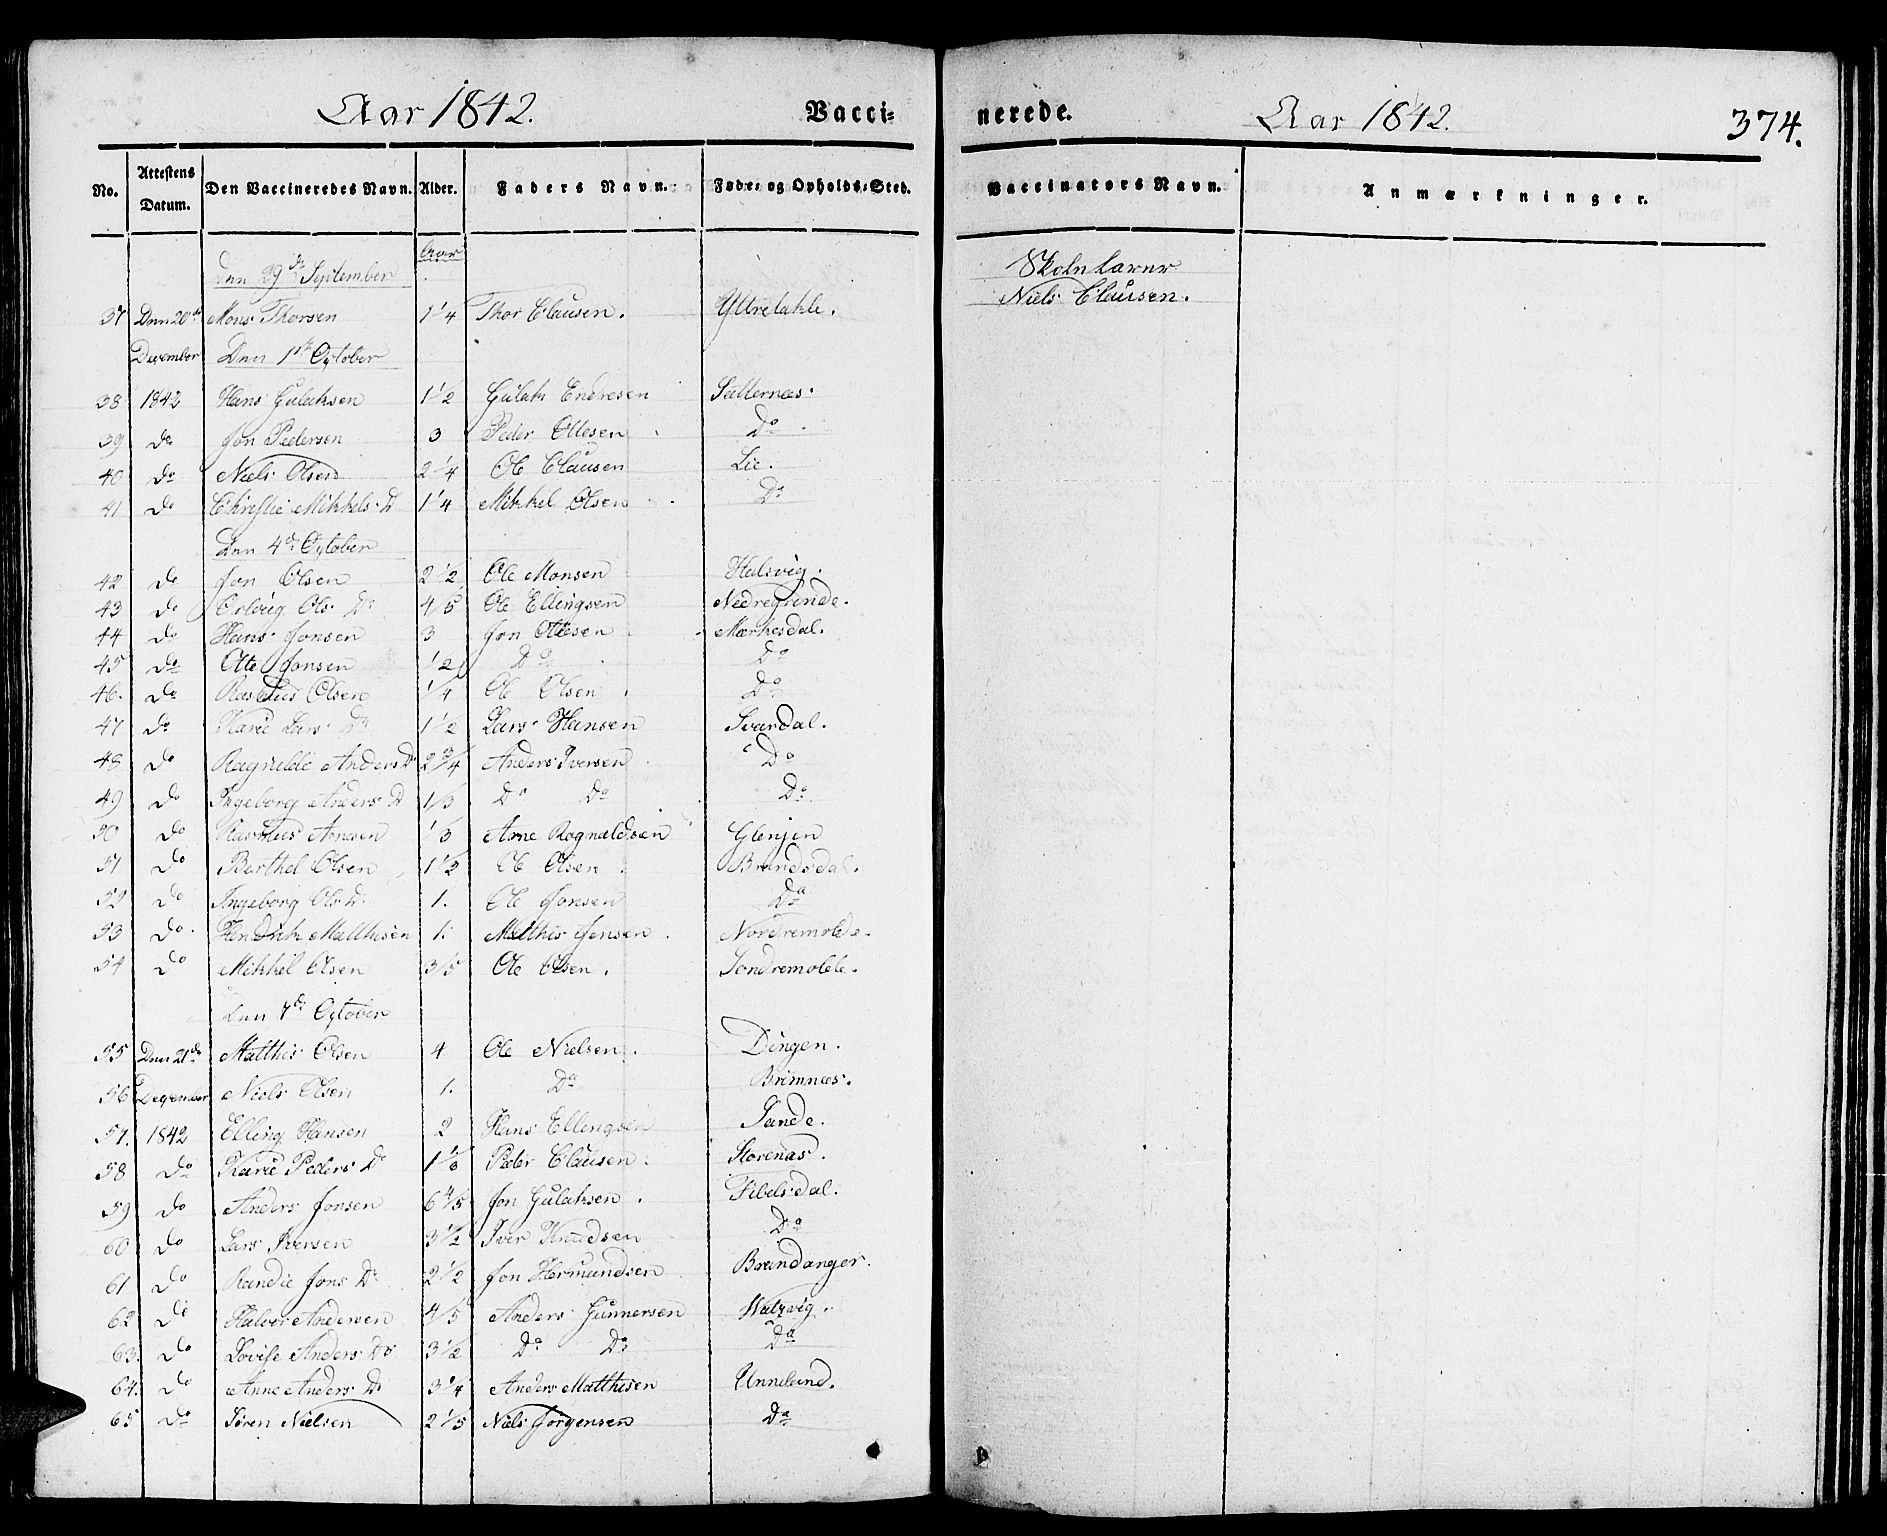 Aar 1842. Vacci- nerede. Aar 1842. 374.
No. Attestens Datum. Den Vaccineredes Navn. Alder. Faders Navn. Føde- og Opholds-Sted. Vaccinators Navn. Anmærkninger.
Den 29de September Aar Skolelærer
37 Den 20de Mons Thorsen 1 1/4 Thor Clausen. Yttretahle. Niels Clausen.
December Den 1ste October
38 1842 Hans Gulaksen 1 1/2 Gulak Endresen Sætternæs.
39 do Jon Pedersen 3 Peder Ottesen Do
40 do Niels Olsen 2 1/4 Ole Clausen Lie.
41 do Christie Mikkels D 1 1/4 Mikkel Olsen Do
Den 4de October
42 do Jon Olsen 2 1/2 Ole Monsen Halsvig.
43 do Ols D 4/5 Ole Ellingsen Nedregrinde.
44 do Hans Jonsen 3 Jon Ottesen Mærkesdal.
45 do Otte Jonsen 1/2 Do Do
46. do Rasmus Olsen 1/4 Ole Olsen Do
47 do Karie Lars D 1 1/2 Lars Hansen Svardal.
48 do Ragnilde Anders D 2 3/4 Anders Iversen Do
49 do Ingeborg Anders D 1/3 Do Do Do
50 do Rasmus Arnesen 1/3 Arne Rognaldsen Glenjen
51 do Berthel Olsen 1 1/2 Ole Olsen Brandsdal.
52 do Ingeborg Ols D 1. Ole Jonsen Do
53 do Hendrik Matthisen 1. Matthis Jensen Nordremolde.
54 do Mikkel Olsen 3/5 Ole Olsen. Søndremolde.
Den 7de October
55 Den 21de Matthis Olsen 4 Ole Nielsen. Dingen.
56 December Niels Olsen 1. Do Brimnæs.
57. 1842 Elling Hansen 2 Hans Ellingsen Sande.
58 do Karie Peders D 1 1/3 Peder Clausen. Storenæs.
59 do Anders Jonsen 6 4/5 Jon Gulaksen. Fibelsdal.
60 do Lars Iversen 3 1/2 Iver Knudsen Do
61 do Randie Jons D 2 1/2 Jon Hermundsen Brandanger.
62 do Halvor Andersen 4/5 Anders Gunnersen Watzvig.
63. do Lovise Anders D 3 1/2 Do Do Do
64. do Anne Anders D 3 1/4 Anders Matthisen Unnelund.
65 do Søren Nielsen 2 1/5 Niels Jørgensen Do